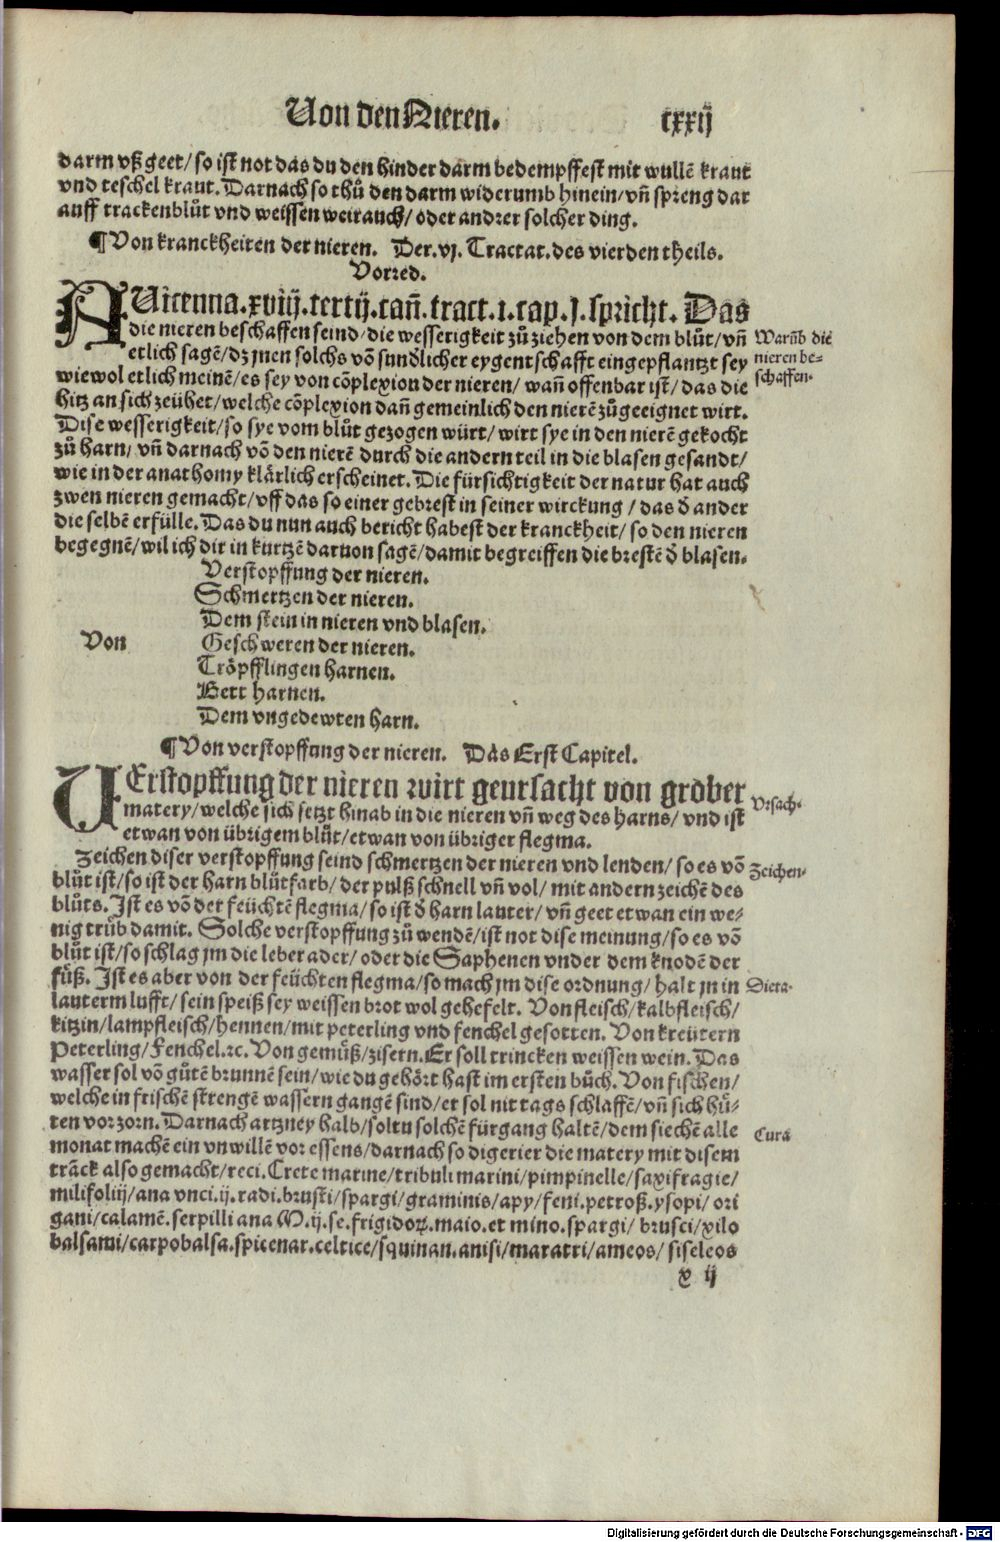 Von den Nieren. cxxij
darm vß geet/ so ist not das du den hinder darm bedempffest mit wullē kraut
vnd teschel kraut. Darnach so thů den darm widerumb hinein/ vñ spreng dar
auff trackenblůt vnd weissen weirauch/ oder andrer solcher ding.
¶Von kranckheiten der nieren. Der.vj. Tractat.des vierden theils.
Vorred.
AUicenna.xviij.tertij.cañ.tract.1.cap.j.spricht. Das
die nieren beschaffen seind/ die wesserigkeit zů ziehen von dem blůt/ vñ
etlich sagē/ dz jnen solchs vō sundlicher eygentschafft eingepflantzt sey
wiewol etlich meinē/ es sey von cōplexion der nieren/ wañ offenbar ist/ das die
hitz an sich zeühet/ welche cōplexion dañ gemeinlich den nierē zůgeeignet wirt.
Dise wesserigkeit/ so sye vom blůt gezogen würt/ wirt sye in den nierē gekocht
zů harn/ vñ darnach vō den nierē durch die andern teil in die blasen gesandt/
wie in der anathomy klärlich erscheinet. Die fürsichtigkeit der natur hat auch
zwen nieren gemacht/ vff das so einer gebrest in seiner wirckung / das d̄ ander
die selbē erfülle. Das du nun auch bericht habest der kranckheit/ so den nieren
begegnē/ wil ich dir in kurtzē daruon sagē/ damit begreiffen die brestē d̄ blasen.
Warūb die
nieren be-
schaffen.
Verstopffung der nieren.
Schmertzen der nieren.
Dem stein in nieren vnd blasen.
Von Geschweren der nieren.
Tröpfflingen harnen.
Bett harnen.
Dem vngedewten harn.
¶Von verstopffung der nieren. Das Erst Capitel.
VErstopffung der nieren wirt geursacht von grober
matery/ welche sich setzt hinab in die nieren vñ weg des harns/ vnd ist
etwan von übrigem blůt/ etwan von übriger flegma.
Vrsach.
Zeichen diser verstopffung seind schmertzen der nieren vnd lenden/ so es vō
blůt ist/ so ist der harn blůtfarb/ der pulß schnell vñ vol/ mit andern zeichē des
blůts. Ist es vō der feüchtē flegma/ so ist d̄ harn lauter/ vñ geet etwan ein we-
nig trüb damit. Solche verstopffung zů wendē/ ist not dise meinung/ so es vō
blůt ist/ so schlag jm die leber ader/ oder die Saphenen vnder dem knodē der
fůß. Ist es aber von der feüchten flegma/ so mach jm dise ordnung/ halt jn in
lauterm lufft/ sein speiß sey weissen brot wol gehefelt. Von fleisch/ kalbfleisch/
kitzin/ lampfleisch/ hennen/ mit peterling vnd fenchel gesotten. Von kreütern
Peterling/ Fenchel.ꝛc. Von gemůß/ zisern. Er soll trincken weissen wein. Das
wasser sol vō gůtē brunnē sein/ wie du gehört hast im ersten bůch. Von fischen/
welche in frischē strengē wassern gangē sind/ er sol nit tags schlaffē/ vñ sich hů-
ten vor zorn. Darnach artzney halb/ soltu solchē fürgang haltē/ dem siechē alle
monat machē ein vnwillē vor essens/ darnach so digerier die matery mit disem
trāck also gemacht/ reci. Crete marine/ tribuli marini/ pimpinelle/ saxifragie/
milifolij/ ana vnci.ij.radi.brusti/ spargi/ graminis/ apy/ feni.petroß.ysopi/ ori
gani/ calamē.serpilli ana M.ij.se.frigidoꝝ.maio.et mino.spargi/ brusci/ xilo
balsami/ carpobalsa.spicenar.celtice/ squinan.anisi/ maratri/ ameos/ siseleos
Zeichen.
Dieta.
Cura
x ij
Digitalisierung gefördert durch die Deutsche Forschungsgemeinschaft - DFG